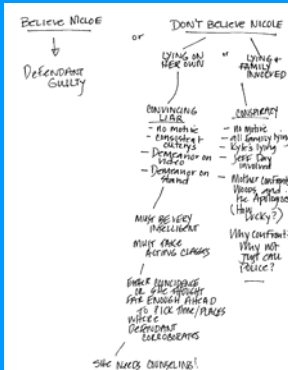 BELIEVE NICLOE
or
DON'T BELIEVE NICOLE
DEFENDANT
GUILTY
LYING ON
HER OWN
or
LYING +
FAMILY
INVOLVED
CONVINCING
LIAR
- no motive
- consistent
outcrys
- Demeanor on
video
- Demeanor on
stand
MUST BE VERY
INTELLIGENT
MUST TAKE
ACTING CLASSES
EITHER COINCIDENCE
OR SHE THOUGHT
FAR ENOUGH AHEAD
TO PICK TIMES/PLACES
WHERE
DEFENDANT
CORROBORATES
SHE NEEDS COUNSELING!
CONSPIRACY
- no motive
- all family lying
- Kyle's lying
- Jeff Day
involved
- Mother confronts
Woods and
He Apologizes
(How
Lucky?)
Why confront?
Why not
just call
Police?